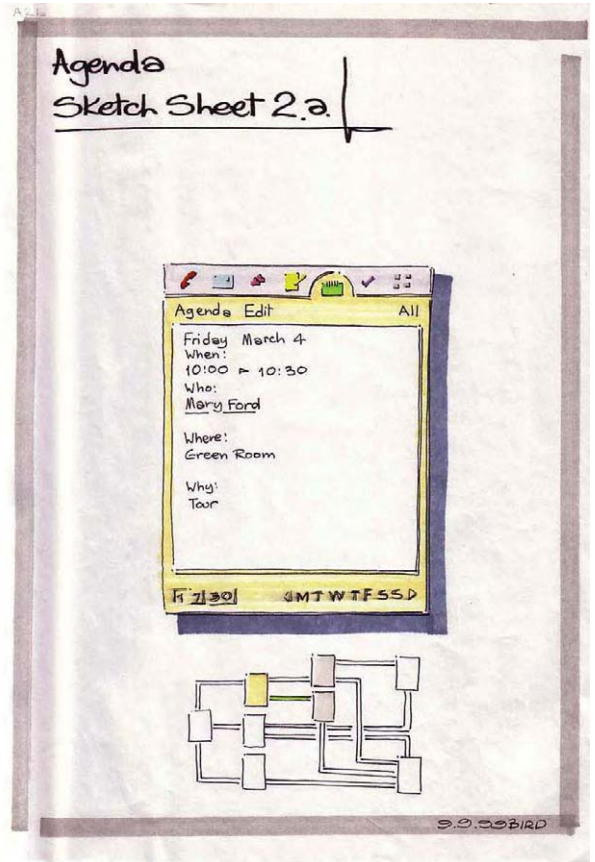 Agenda
Sketch Sheet 2.a.
Agenda Edit All
Friday March 4
When:
10:00 ▻ 10:30
Who:
Mary Ford
Where:
Green Room
Why:
Tour
1 7 30 ◁MTWTFSS▷
9.9.99BIRD